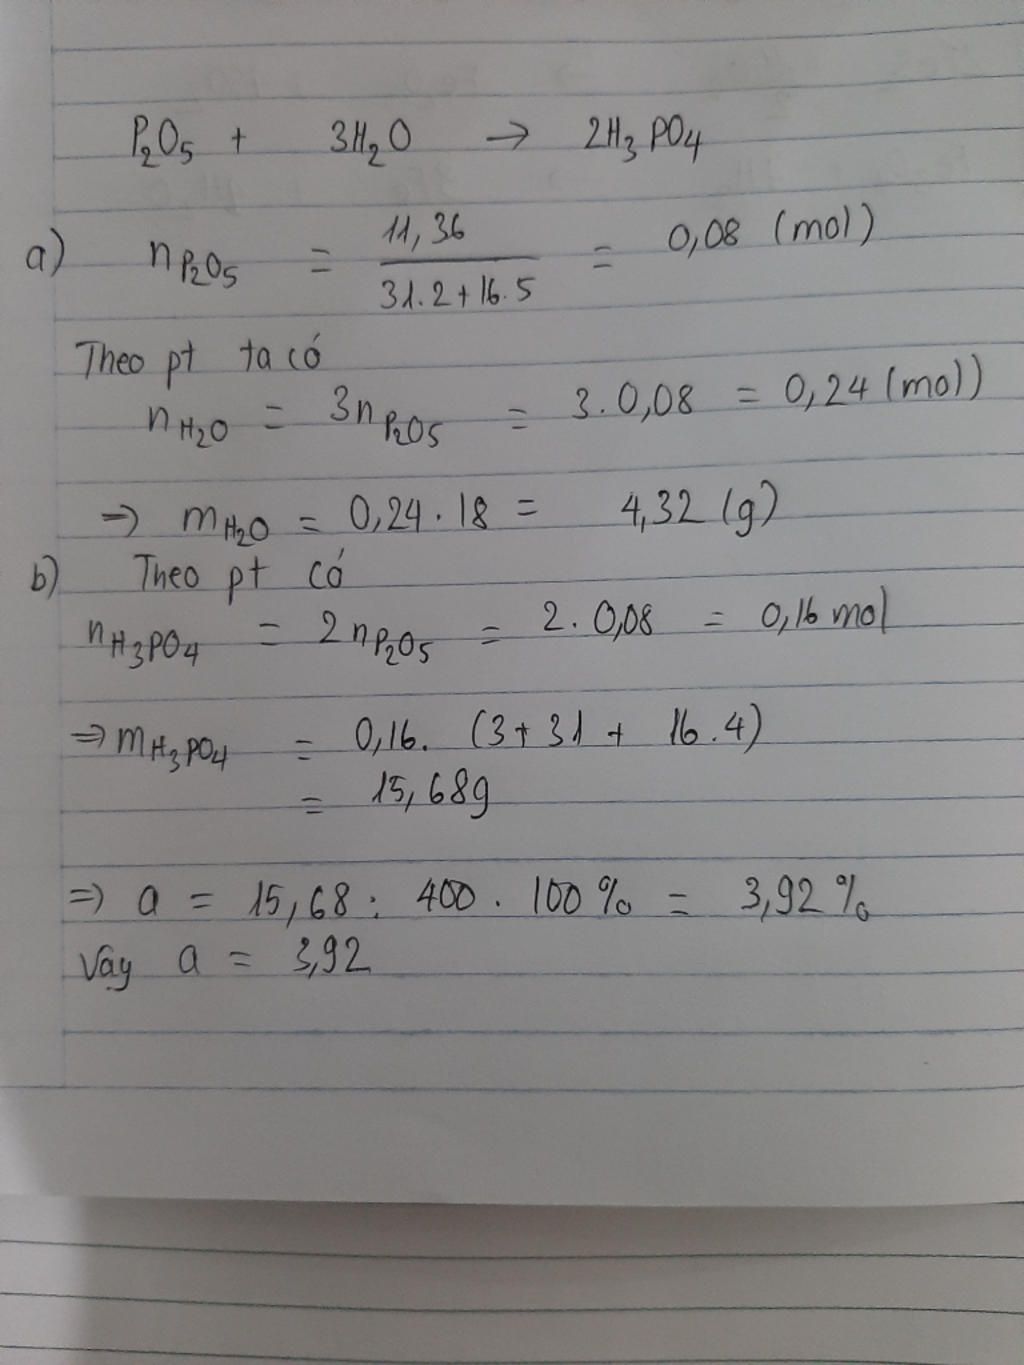 P₂O₅ + 3H₂O → 2H₃PO₄
a) nP₂O₅ = 11,36 / 31.2+16.5 = 0,08 (mol)
Theo pt ta có
nH₂O = 3nP₂O₅ = 3.0,08 = 0,24 (mol))
=> mH₂O = 0,24.18 = 4,32 (g)
b) Theo pt có
nH₃PO₄ = 2nP₂O₅ = 2.0,08 = 0,16 mol
=> mH₃PO₄ = 0,16. (3+31+ 16.4)
= 15,68g
=> a = 15,68: 400.100% = 3,92%
Vậy a = 3,92